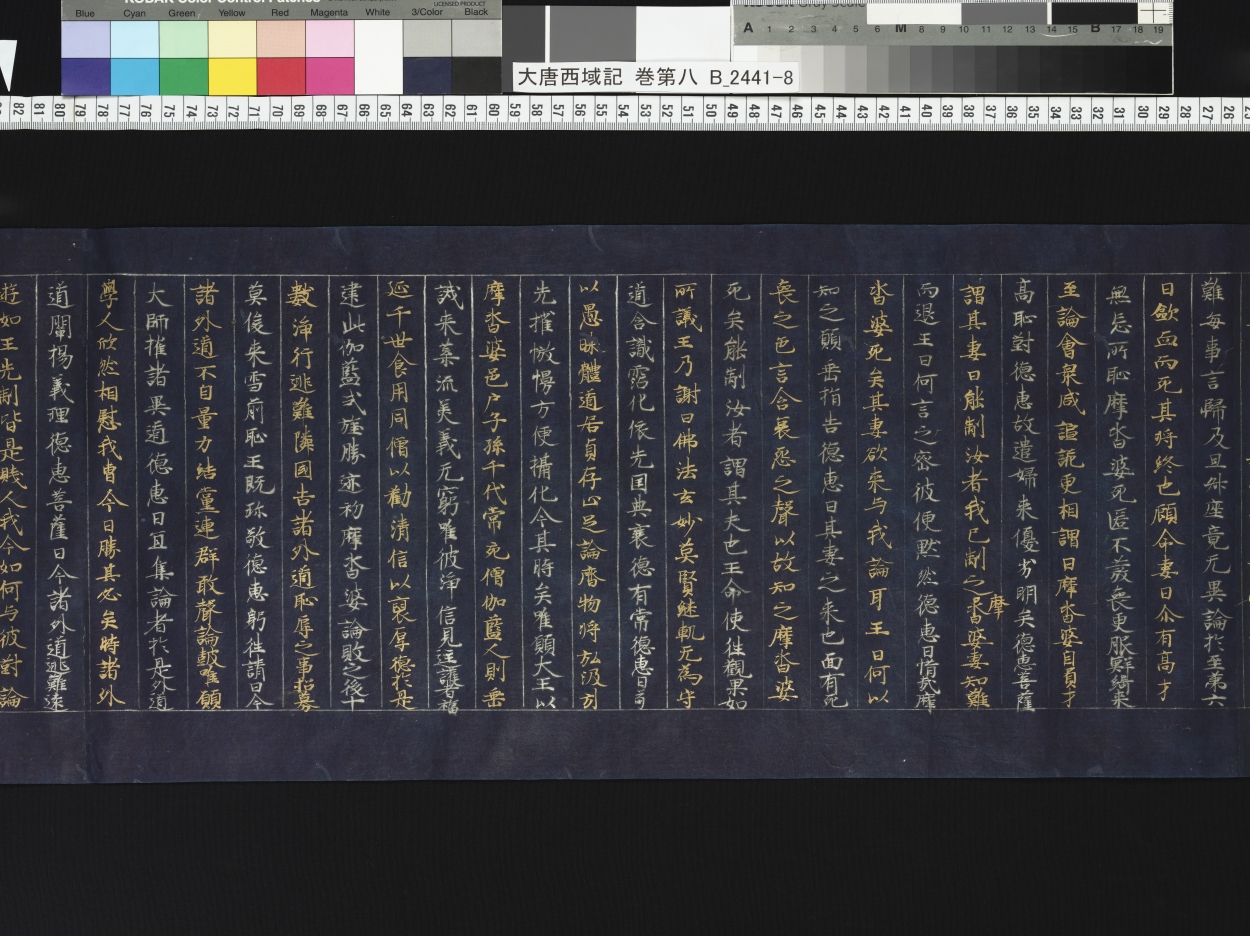 KODAK Color Control Patches
LICENSED PRODUCT
Blue Cyan Green Yellow Red Magenta White 3/Color Black
A 1 2 3 4 5 6 M 8 9 10 11 12 13 14 15 B 17 18 19
大唐西域記 巻第八 B_2441-8
82 81 80 79 78 77 76 75 74 73 72 71 70 69 68 67 66 65 64 63 62 61 60 59 58 57 56 55 54 53 52 51 50 49 48 47 46 45 44 43 42 41 40 39 38 37 36 35 34 33 32 31 30 29 28 27 26
難每事言歸及旦升座竟无異論於至第六
日歐血而死其将終也顧命妻曰尒有高才
無忘所恥摩沓婆死匿不發喪更服鮮綺来
至論會衆咸諠譁更相謂曰摩沓婆自負才
高恥對德惠故遣婦来優劣明矣德惠菩薩
謂其妻曰能制汝者我已制之摩沓婆妻知難
而退王曰何言之密彼便默然德惠曰惜哉摩
沓婆死矣其妻欲来与我論耳王曰何以
知之願垂指告德惠曰其妻之来也面有死
喪之色言含哀怨之聲以故知之摩沓婆
死矣能制汝者謂其夫也王命使往觀果如
所議王乃謝曰佛法玄妙英賢継軌无為守
道含識霑化依先国典褒德有常德惠曰苟
以愚昧體道居貞存止足論齊物将弘汲引
先摧慠慢方便攝化今其時矣唯願大王以
摩沓婆邑戶子孫千代常充僧伽藍人則垂
誡来葉流美義无窮唯彼淨信見匡護者福
延千世食用同僧以勸清信以褒厚德於是
建此伽藍式旌勝迹初摩沓婆論敗之後十
數淨行逃難隣國告諸外道恥辱之事招募
英俊来雪前恥王既珎敬德惠躬往請曰今
諸外道不自量力結黨連群敢聲論鼓唯願
大師摧諸異道德惠曰宜集論者於是外道
學人欣然相慰我曹今日勝其必矣時諸外
道闡揚義理德惠菩薩曰今諸外道逃難遠
遊如王先制皆是賤人我今如何与彼對論